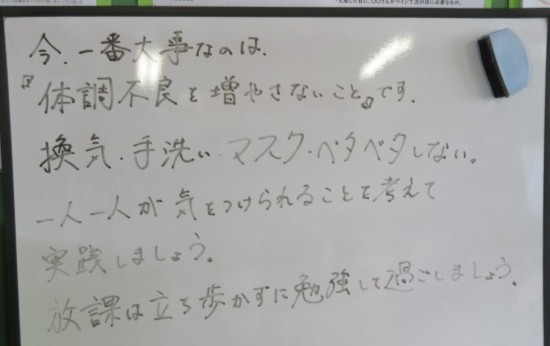 今、一番大事なのは、
『体調不良を増やさないこと』です。
換気・手洗い・マスク・ペタペタしない。
一人一人が気をつけられることを考えて
実践しましょう。
放課は立ち歩かずに勉強して過ごしましょう。